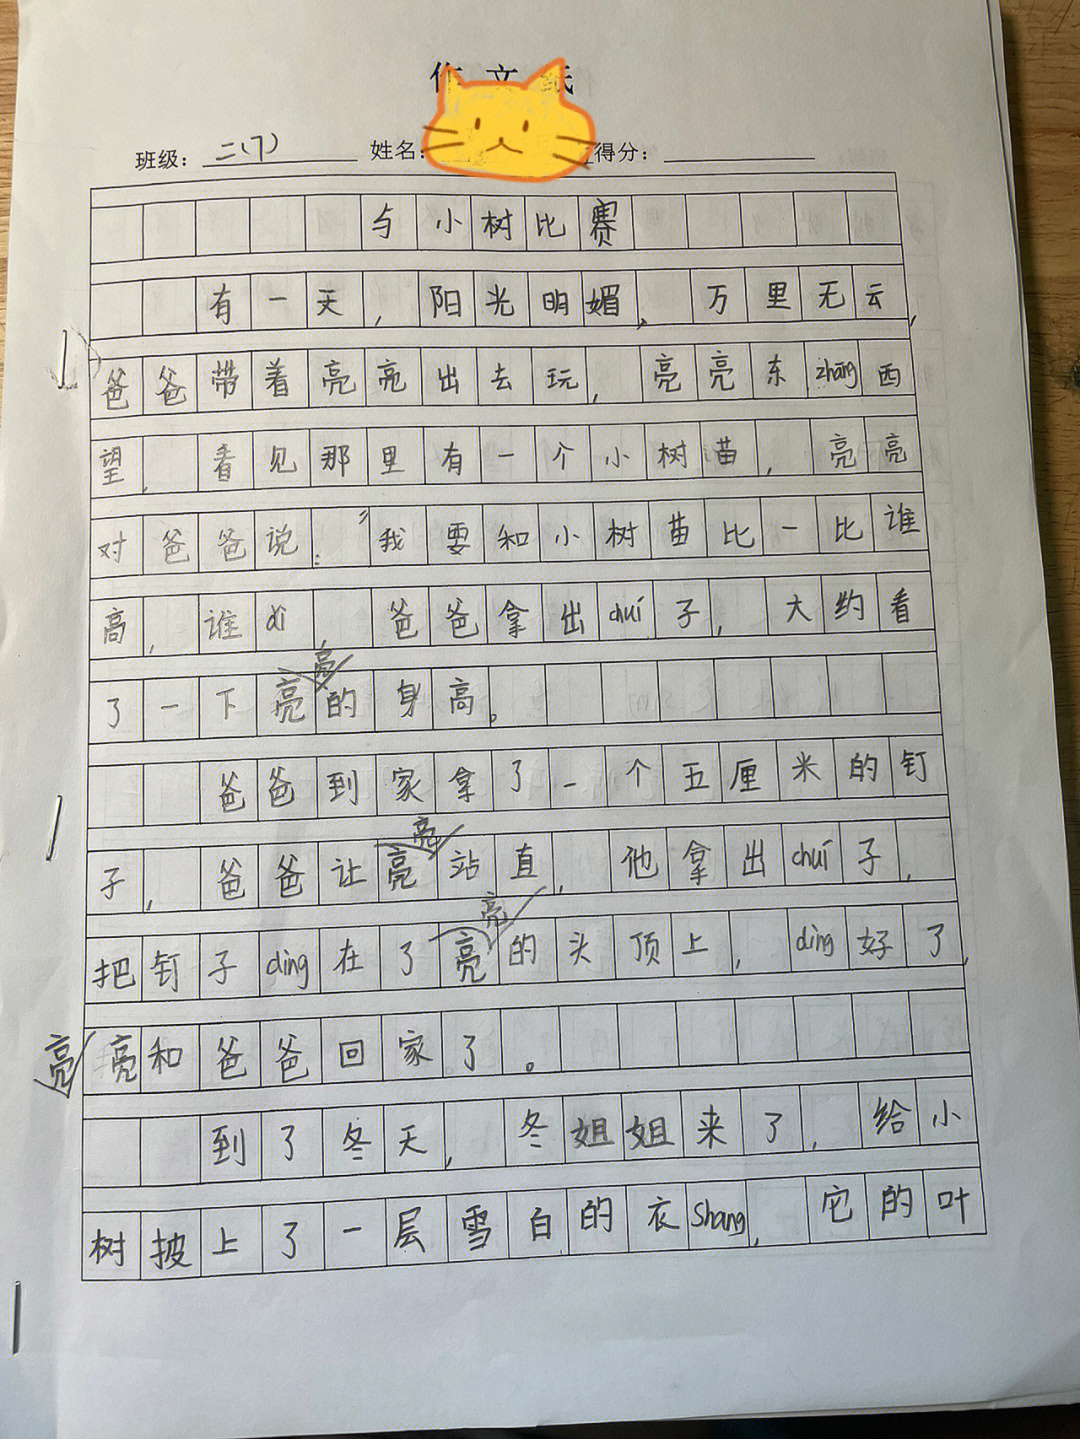 作文纸
班级：二(7) 姓名： 得分：
与小树比赛
有一天，阳光明媚，万里无云，
爸爸带着亮亮出去玩，亮亮东zhāng西
望，看见那里有一个小树苗，亮亮
对爸爸说：“我要和小树苗比一比谁
高，谁dī，爸爸拿出chuí子，大约看
了一下亮亮的身高。
爸爸到家拿了一个五厘米的钉
子，爸爸让亮亮站直，他拿出chuí子，
把钉子dìng在了亮亮的头顶上，dìng好了，
亮亮和爸爸回家了。
到了冬天，冬姐姐来了，给小
树披上了一层雪白的衣shang，它的叶